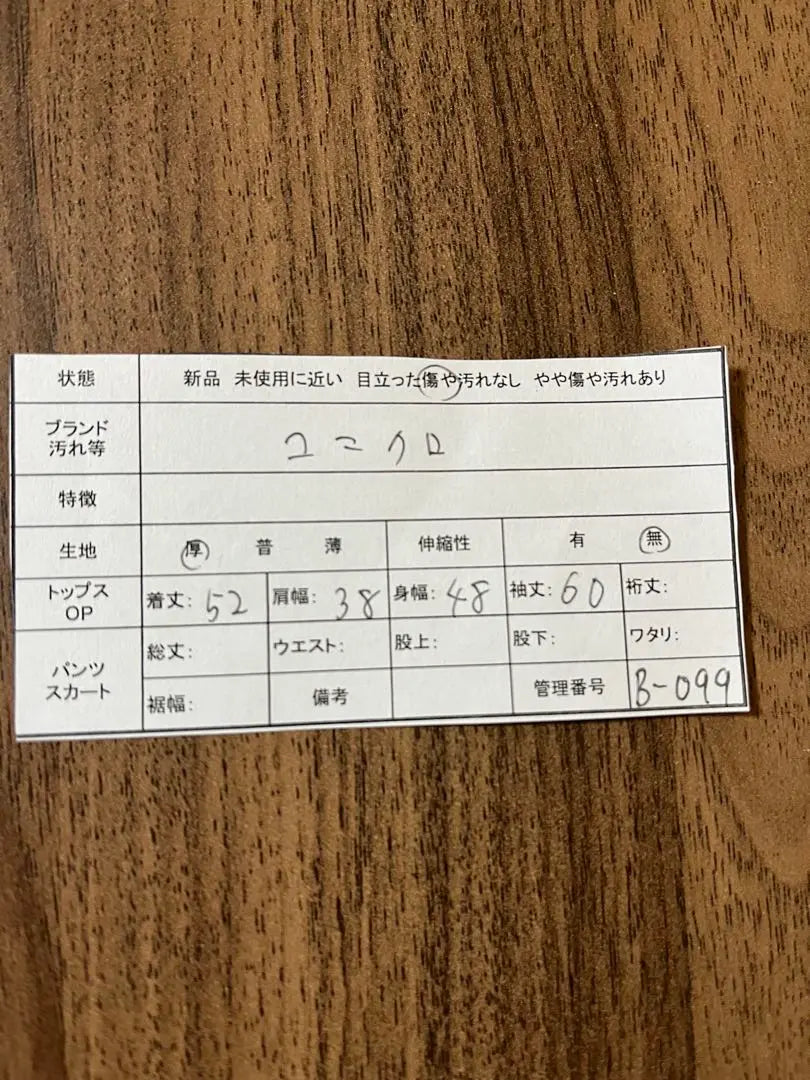 状態 新品 未使用に近い 目立った傷や汚れなし やや傷や汚れあり
ブランド
汚れ等
ユニクロ
特徴
生地 厚 普 薄 伸縮性 有 無
トップス
OP
着丈: 52 肩幅: 38 身幅: 48 袖丈: 60 裄丈:
パンツ
スカート
総丈: ウエスト: 股上: 股下: ワタリ:
裾幅: 備考 管理番号 B-099